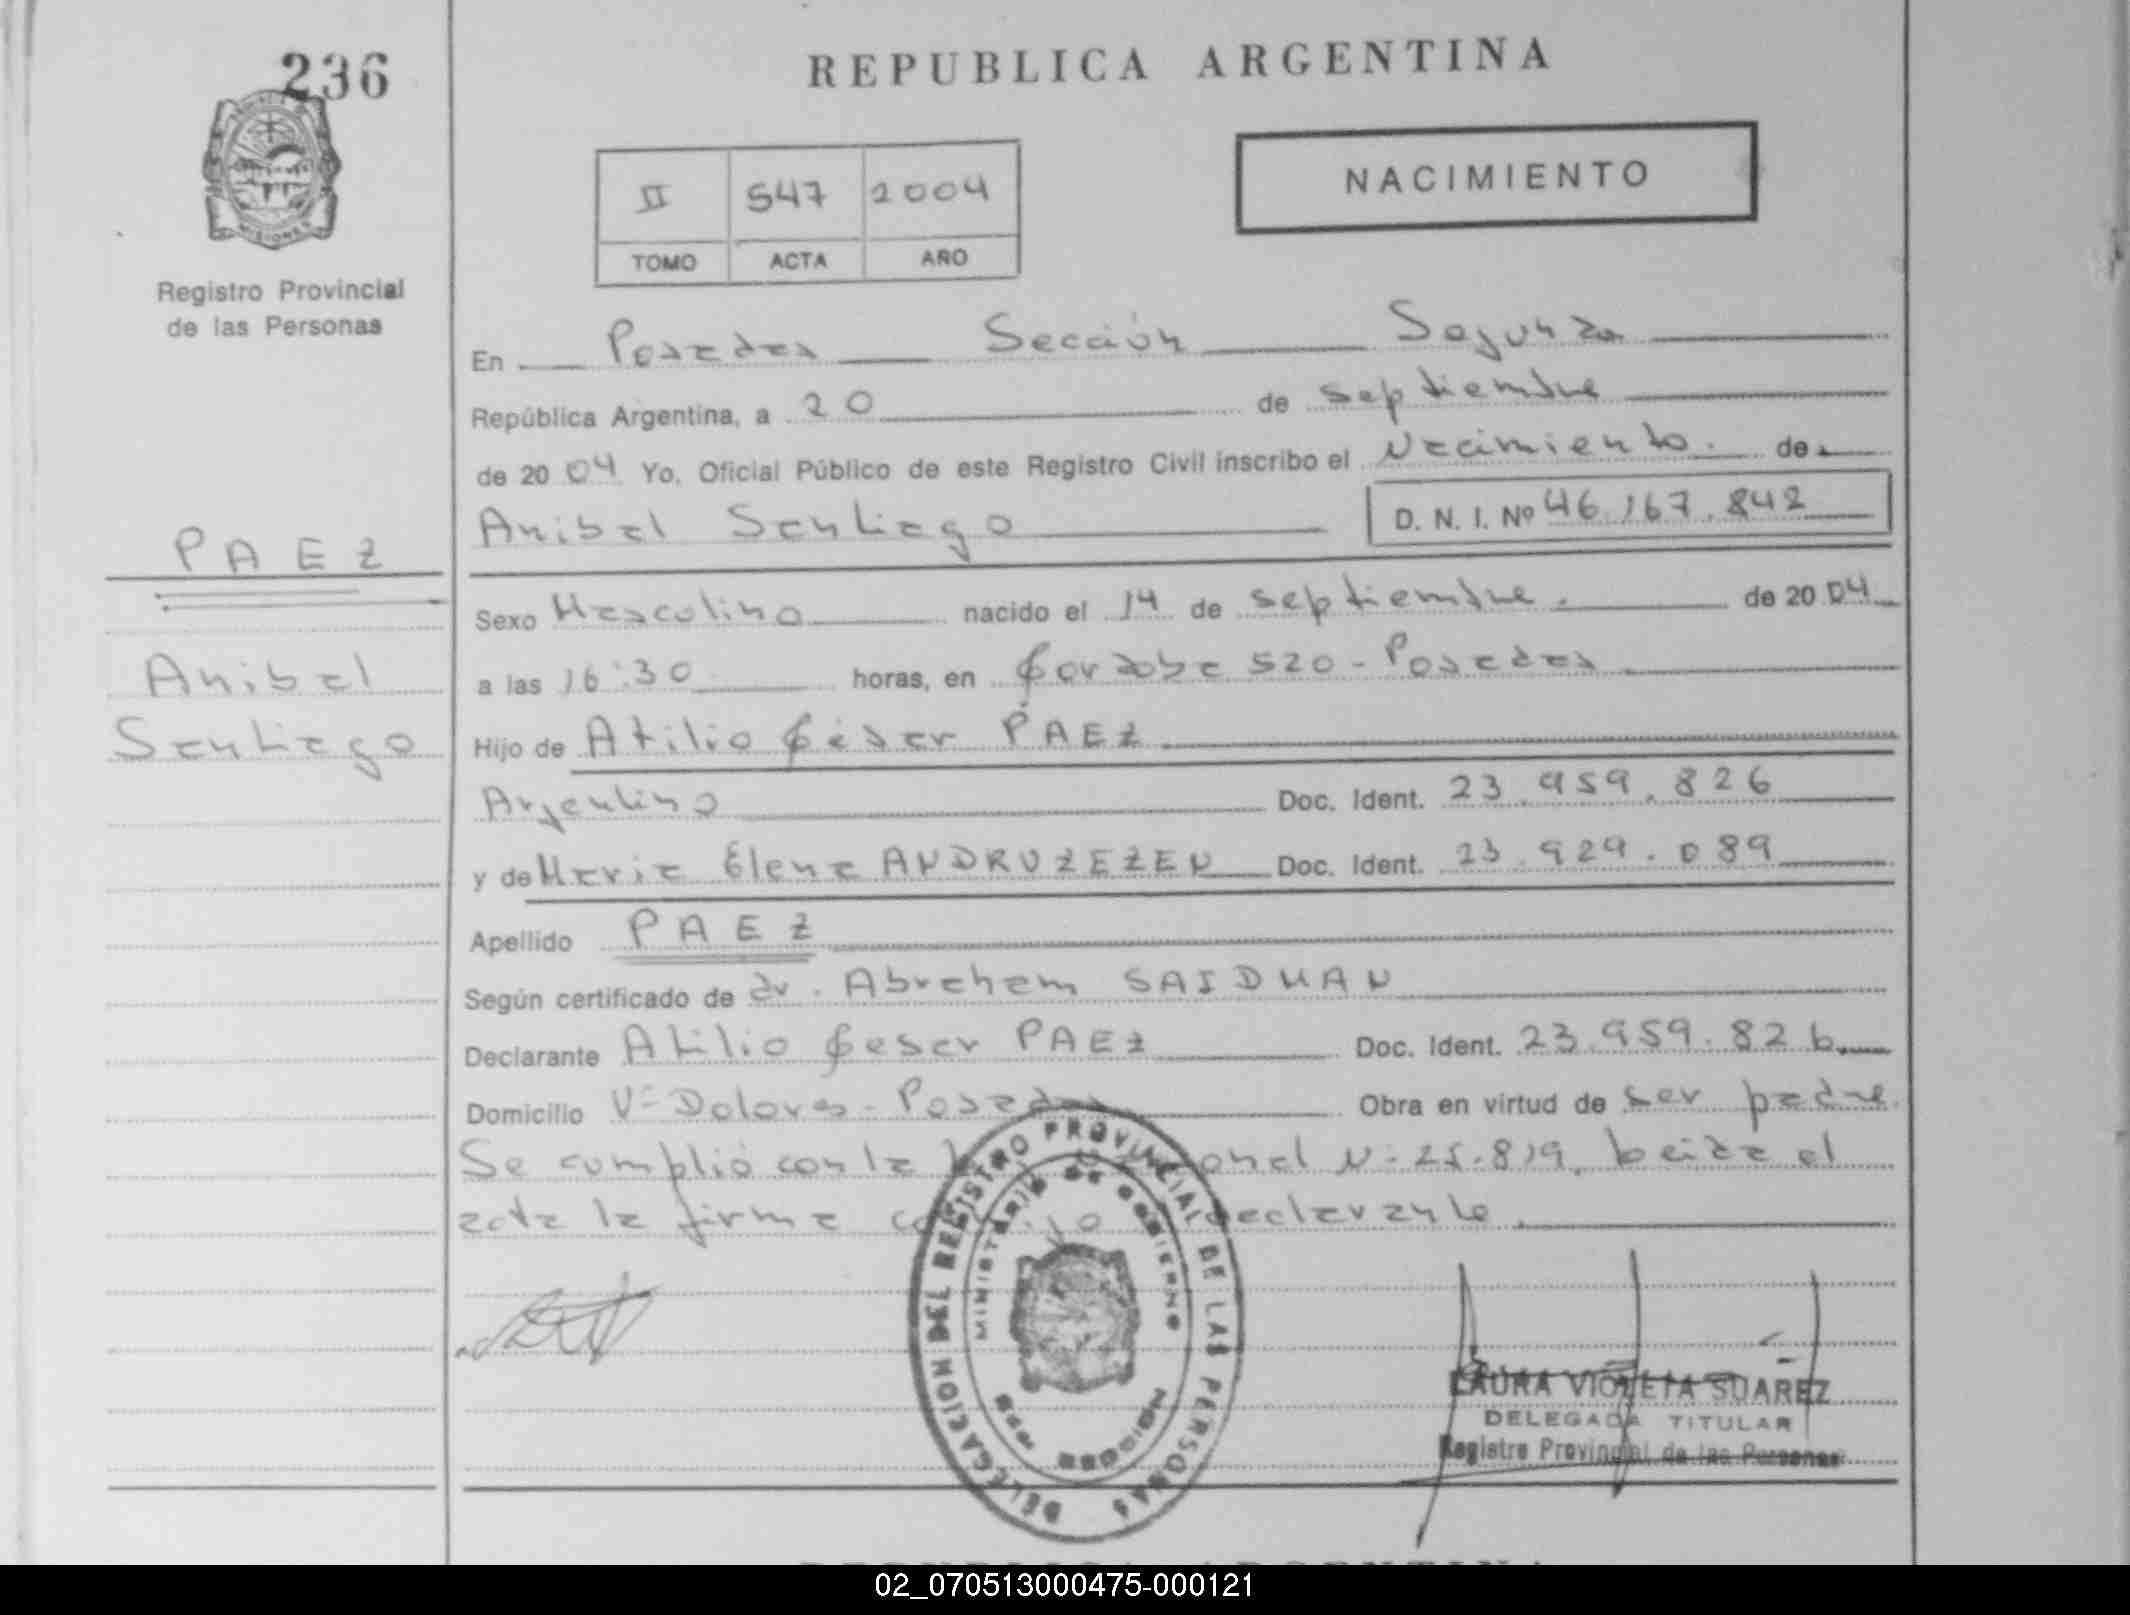 236
REPUBLICA ARGENTINA
NACIMIENTO
II 547 2004
TOMO ACTA AÑO
MISIONES
Registro Provincial
de las Personas
En Posadas Sección Segunda
República Argentina, a 20 de septiembre
de 2004 Yo, Oficial Público de este Registro Civil inscribo el Nacimiento. de
Anibal Santiago D. N. I. Nº 46.167.842
PAEZ
Anibal
Santiago
Sexo Masculino nacido el 14 de septiembre. de 2004
a las 16:30 horas, en Cordoba 520 - Posadas
Hijo de Atilio César PAEZ
Argentino Doc. Ident. 23.959.826
y de Maria Elena ANDRUZEZEN Doc. Ident. 23.929.089
Apellido PAEZ
Según certificado de dr. Abraham SAIDMAN
Declarante Atilio Cesar PAEZ Doc. Ident. 23.959.826
Domicilio Vª Dolores - Posadas Obra en virtud de ser padre.
Se cumplió con la Nacional Nº 25.819, leida el
acta la firma declarante.
DELEGACION DEL REGISTRO PROVINCIAL DE LAS PERSONAS
MINISTERIO DE GOBIERNO
LAURA VIOLETA SUAREZ
DELEGADA TITULAR
Registro Provincial de las Personas
REPUBLICA ARGENTINA
02_070513000475-000121